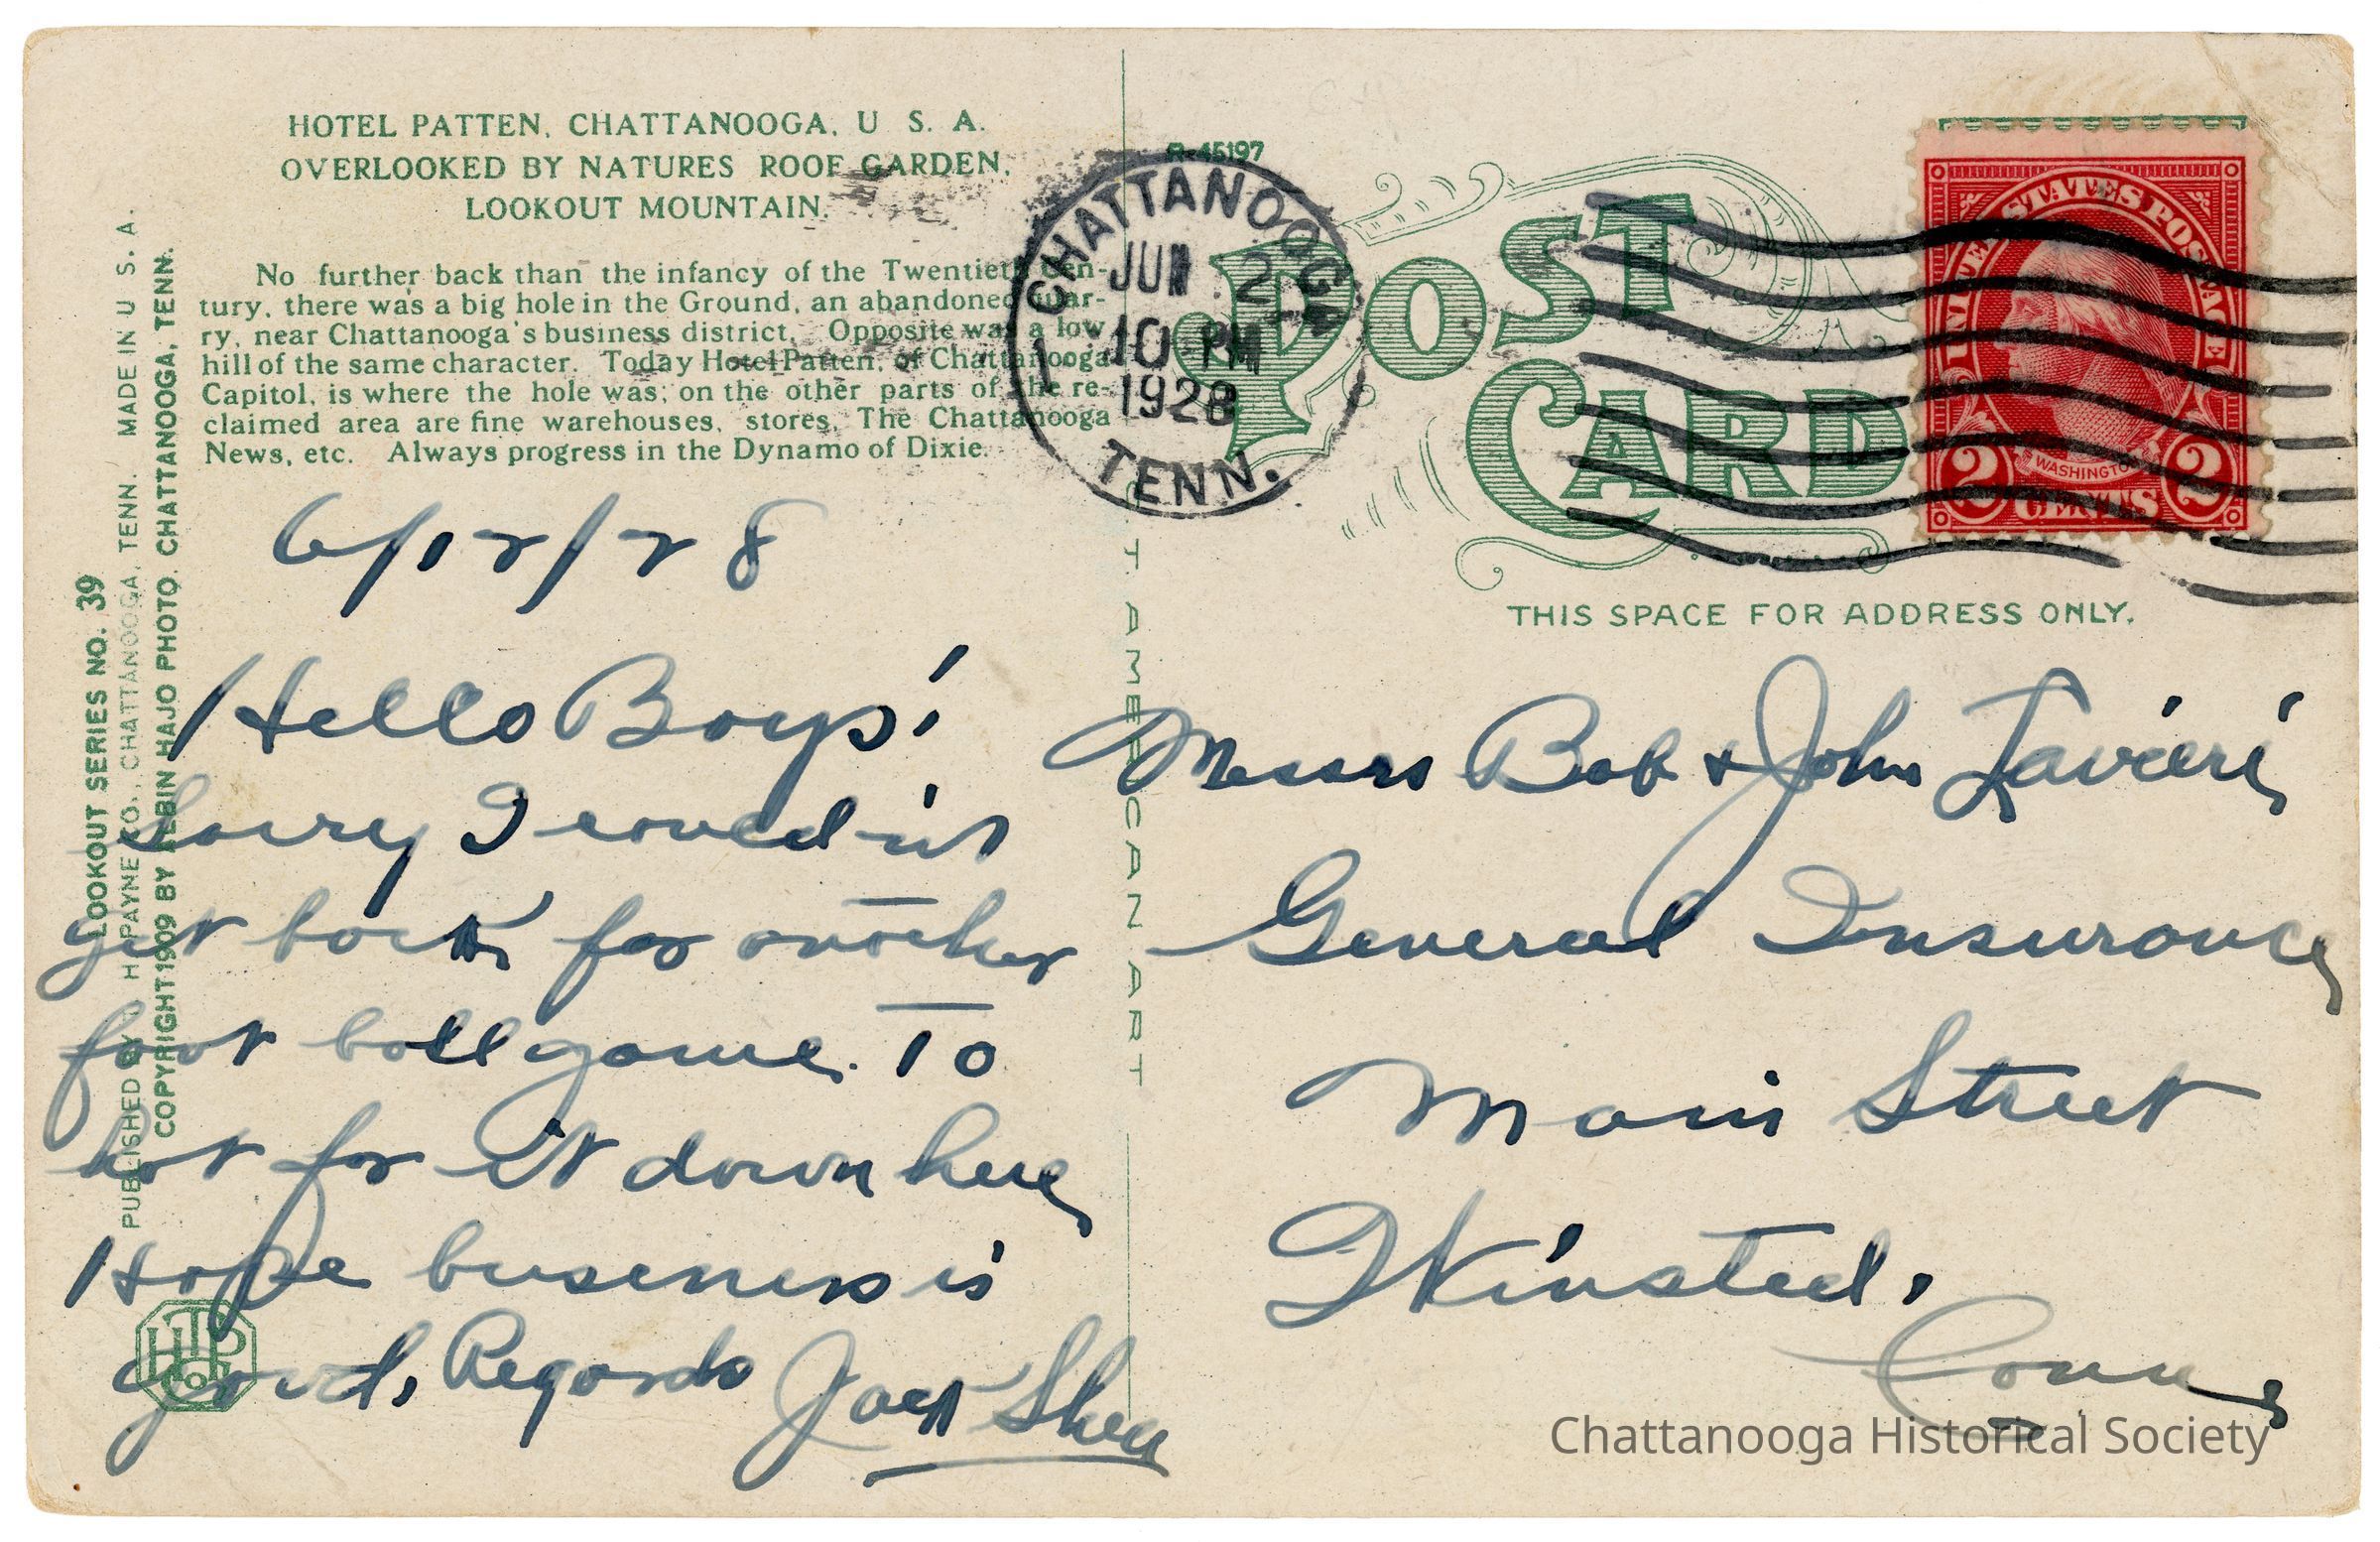 HOTEL PATTEN, CHATTANOOGA, U. S. A.
OVERLOOKED BY NATURES ROOF GARDEN,
LOOKOUT MOUNTAIN.
No further back than the infancy of the Twentieth Cen-
tury, there was a big hole in the Ground, an abandoned quar-
ry, near Chattanooga's business district. Opposite was a low
hill of the same character. Today Hotel Patten, of Chattanooga
Capitol, is where the hole was; on the other parts of the re-
claimed area are fine warehouses, stores, The Chattanooga
News, etc. Always progress in the Dynamo of Dixie.
LOOKOUT SERIES NO. 39
PUBLISHED BY H PAYNE CO., CHATTANOOGA, TENN. MADE IN U. S. A.
COPYRIGHT 1909 BY HAJO PHOTO. CHATTANOOGA, TENN.
6/12/28
Hello Boys!
Sorry I could'nt
get back for another
foot ball game. To
hot for it down here
Hope business is
good. Regards Jack Shea
R-45197
CHATTANOOGA
JUN 2
10 PM
1928
TENN.
POST
CARD
UNITED STATES POSTAGE
WASHINGTON
2 CENTS 2
THIS SPACE FOR ADDRESS ONLY.
C. T. AMERICAN ART
Messrs Bob & John Lavieri
General Insurance
Main Street
Winsted,
Conn
Chattanooga Historical Society